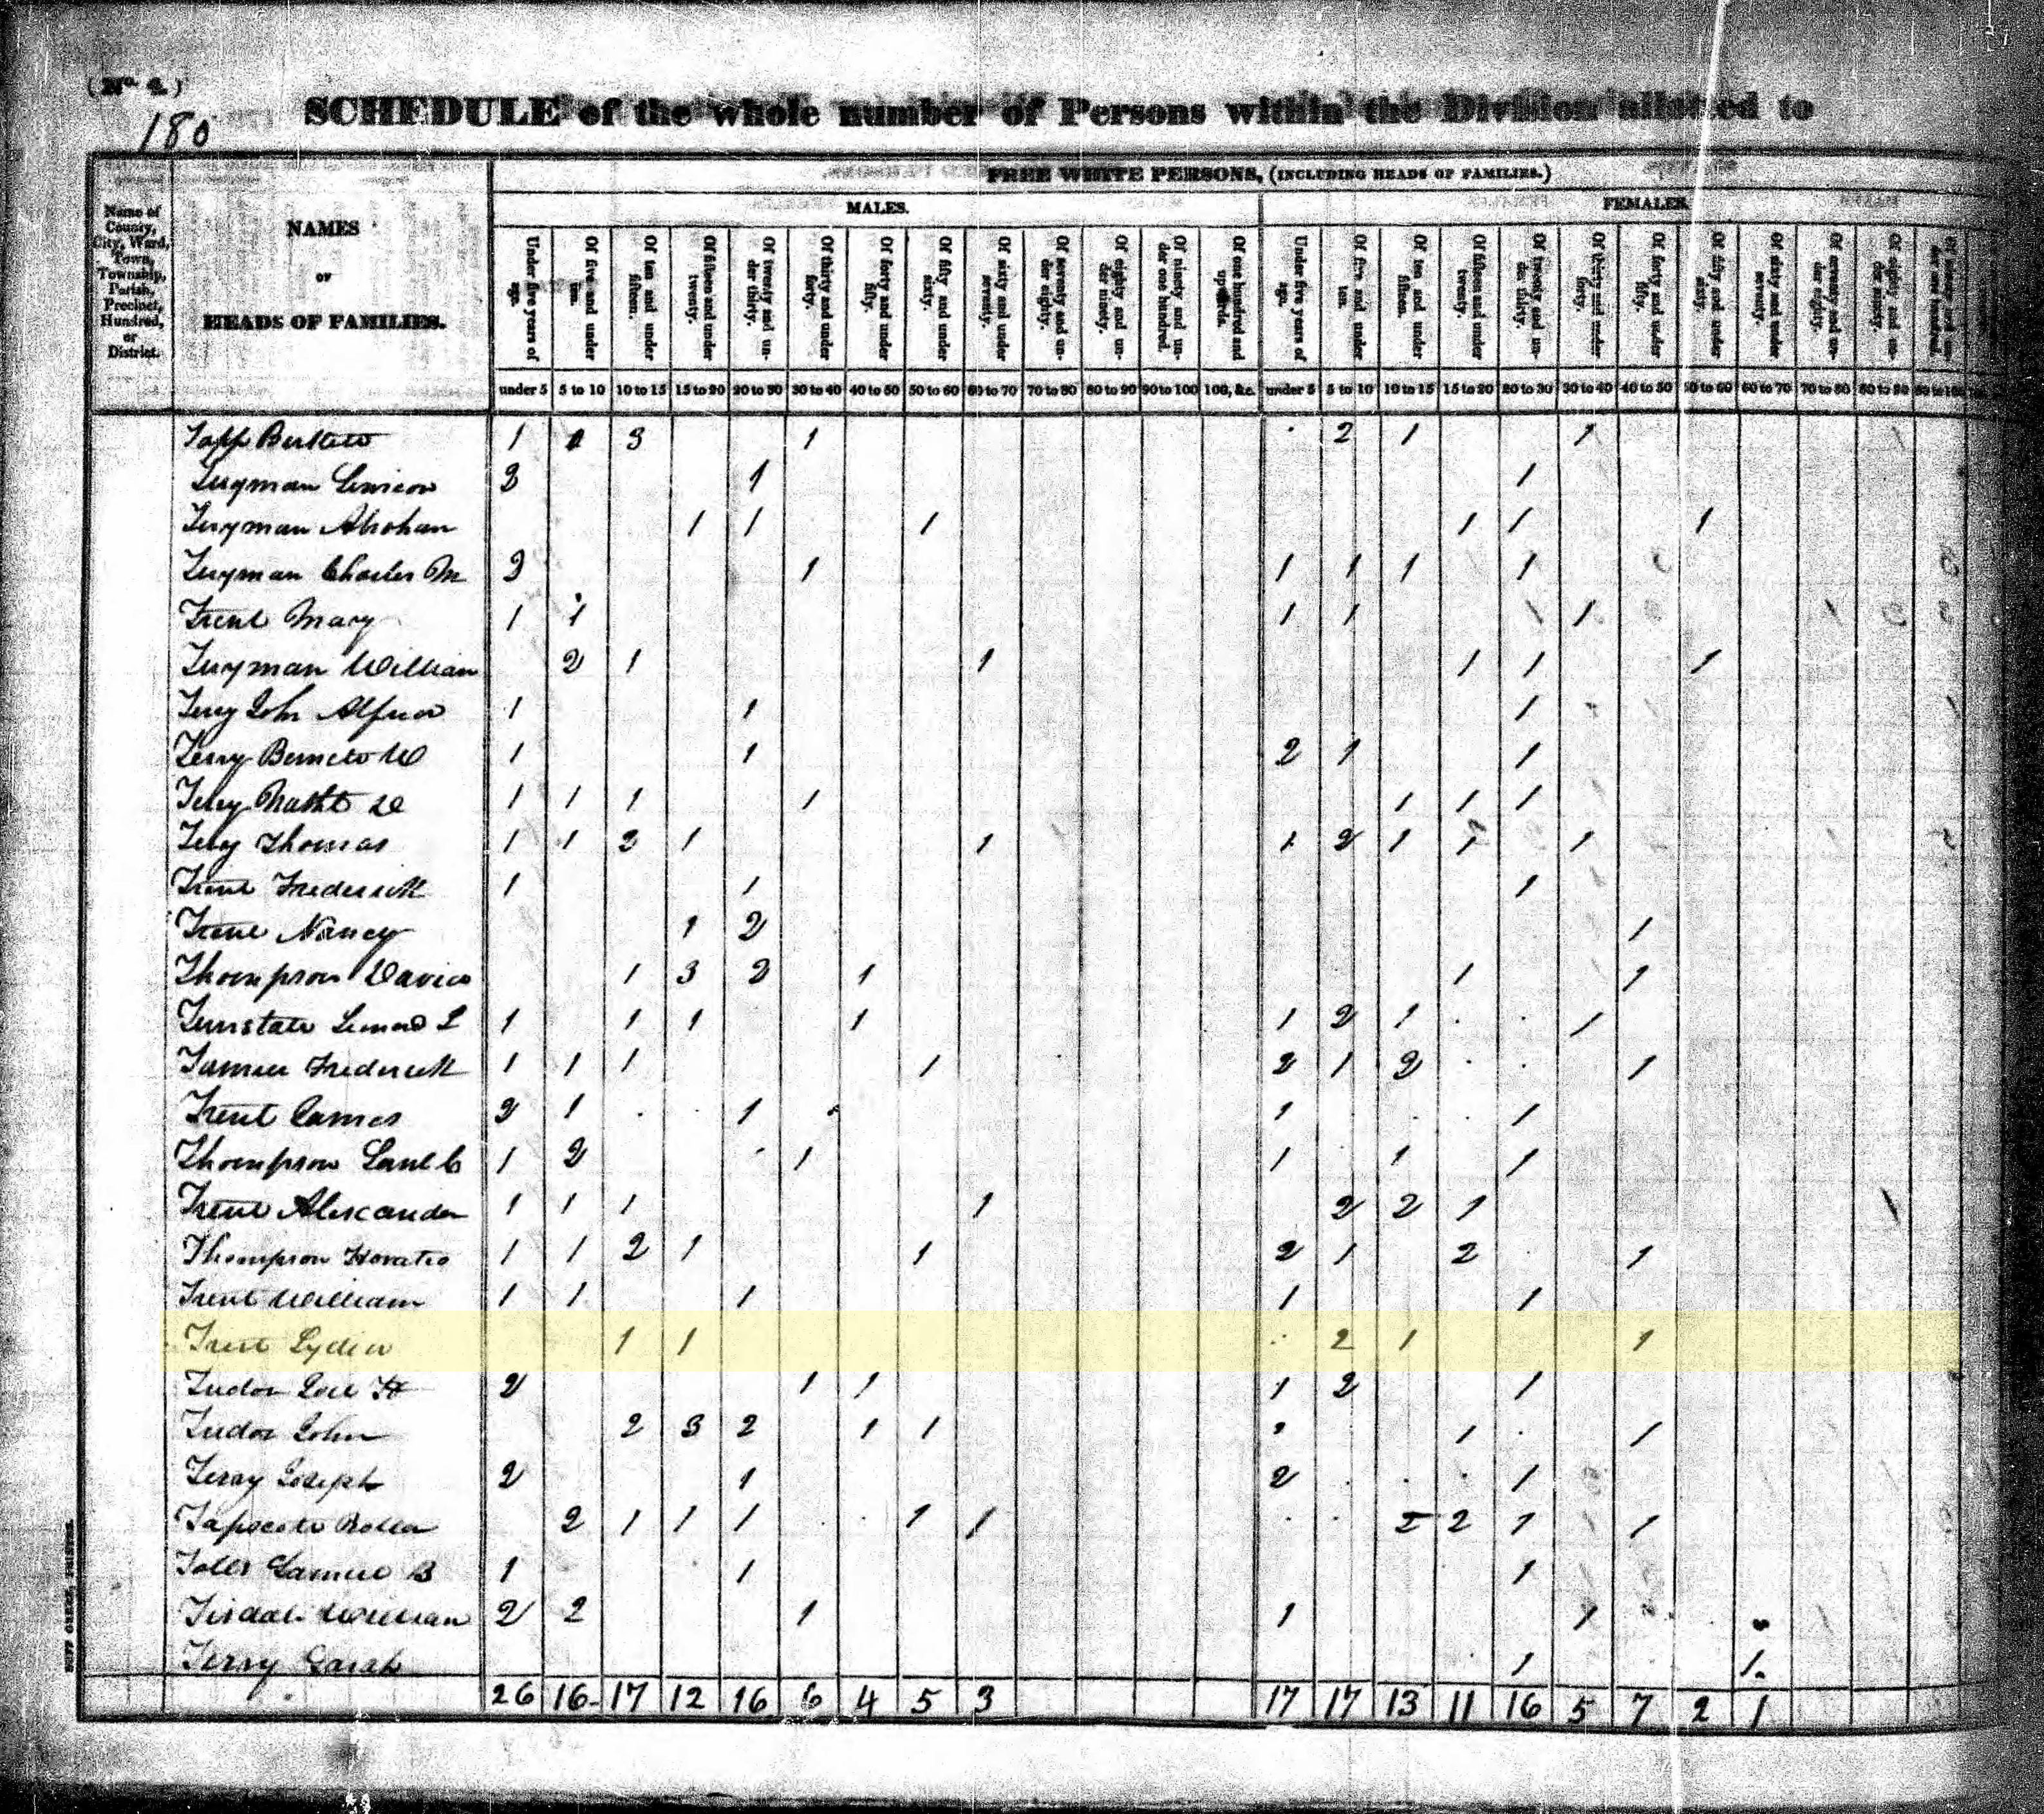 (No. 4.)
180
SCHEDULE of the whole number of Persons within the Division allotted to
Name of County, City, Ward, Town, Township, Parish, Precinct, Hundred, or District.
NAMES
OF
HEADS OF FAMILIES.
FREE WHITE PERSONS, (INCLUDING HEADS OF FAMILIES.)
MALES.
FEMALES.
Under five years of age.
Of five and under ten.
Of ten and under fifteen.
Of fifteen and under twenty.
Of twenty and under thirty.
Of thirty and under forty.
Of forty and under fifty.
Of fifty and under sixty.
Of sixty and under seventy.
Of seventy and under eighty.
Of eighty and under ninety.
Of ninety and under one hundred.
Of one hundred and upwards.
Under five years of age.
Of five and under ten.
Of ten and under fifteen.
Of fifteen and under twenty.
Of twenty and under thirty.
Of thirty and under forty.
Of forty and under fifty.
Of fifty and under sixty.
Of sixty and under seventy.
Of seventy and under eighty.
Of eighty and under ninety.
under 5 5 to 10 10 to 15 15 to 20 20 to 30 30 to 40 40 to 50 50 to 60 60 to 70 70 to 80 80 to 90 90 to 100 100, &c. under 5 5 to 10 10 to 15 15 to 20 20 to 30 30 to 40 40 to 50 50 to 60 60 to 70 70 to 80 80 to 90 90 to 100
Tapp 1 1 3 1 2 1 1
3 1 1
1 1 1 1 1 1
Charles M 3 1 1 1 1 1
Trent Mary 1 1 1 1 1
William 2 1 1 1 1 1
Terry John 1 1 1
Terry 1 1 2 1 1
Terry 1 1 1 1 1 1 1
Terry Thomas 1 1 3 1 1 1 2 1 1 1
Trent Frederick 1 1 1
Trent Nancy 1 2 1
Thompson David 1 3 2 1 1 1
1 1 1 1 1 2 1 1
Frederick 1 1 1 1 2 1 2 1
Trent James 2 1 1 1 1
Thompson 1 2 1 1 1 1
Trent Alexander 1 1 1 1 2 2 1
Thompson Horatio 1 1 2 1 1 2 1 2 1
Trent William 1 1 1 1 1
Trent Lydia 1 1 2 1 1
Tudor 2 1 1 1 2 1
Tudor John 2 3 2 1 1 1 1
Terry Joseph 2 1 2 1
2 1 1 1 1 1 2 2 1 1
Samuel B 1 1 1
William 2 2 1 1 1
Terry Sarah 1 1
26 16 17 12 16 6 4 5 3 17 17 13 11 16 5 7 2 1
DUFF GREEN, PRINTER.